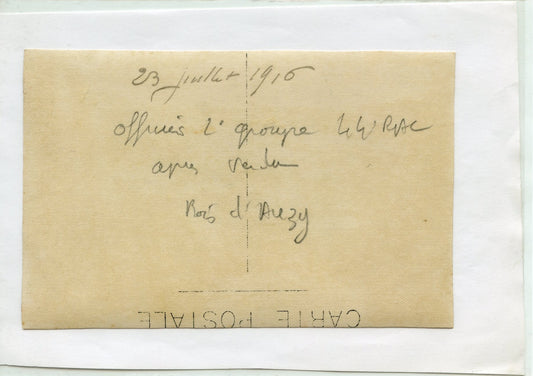 23 juillet 1916
officiers 2e groupe 44 RAC
apres Verdun
Bois d'Auzy
CARTE POSTALE